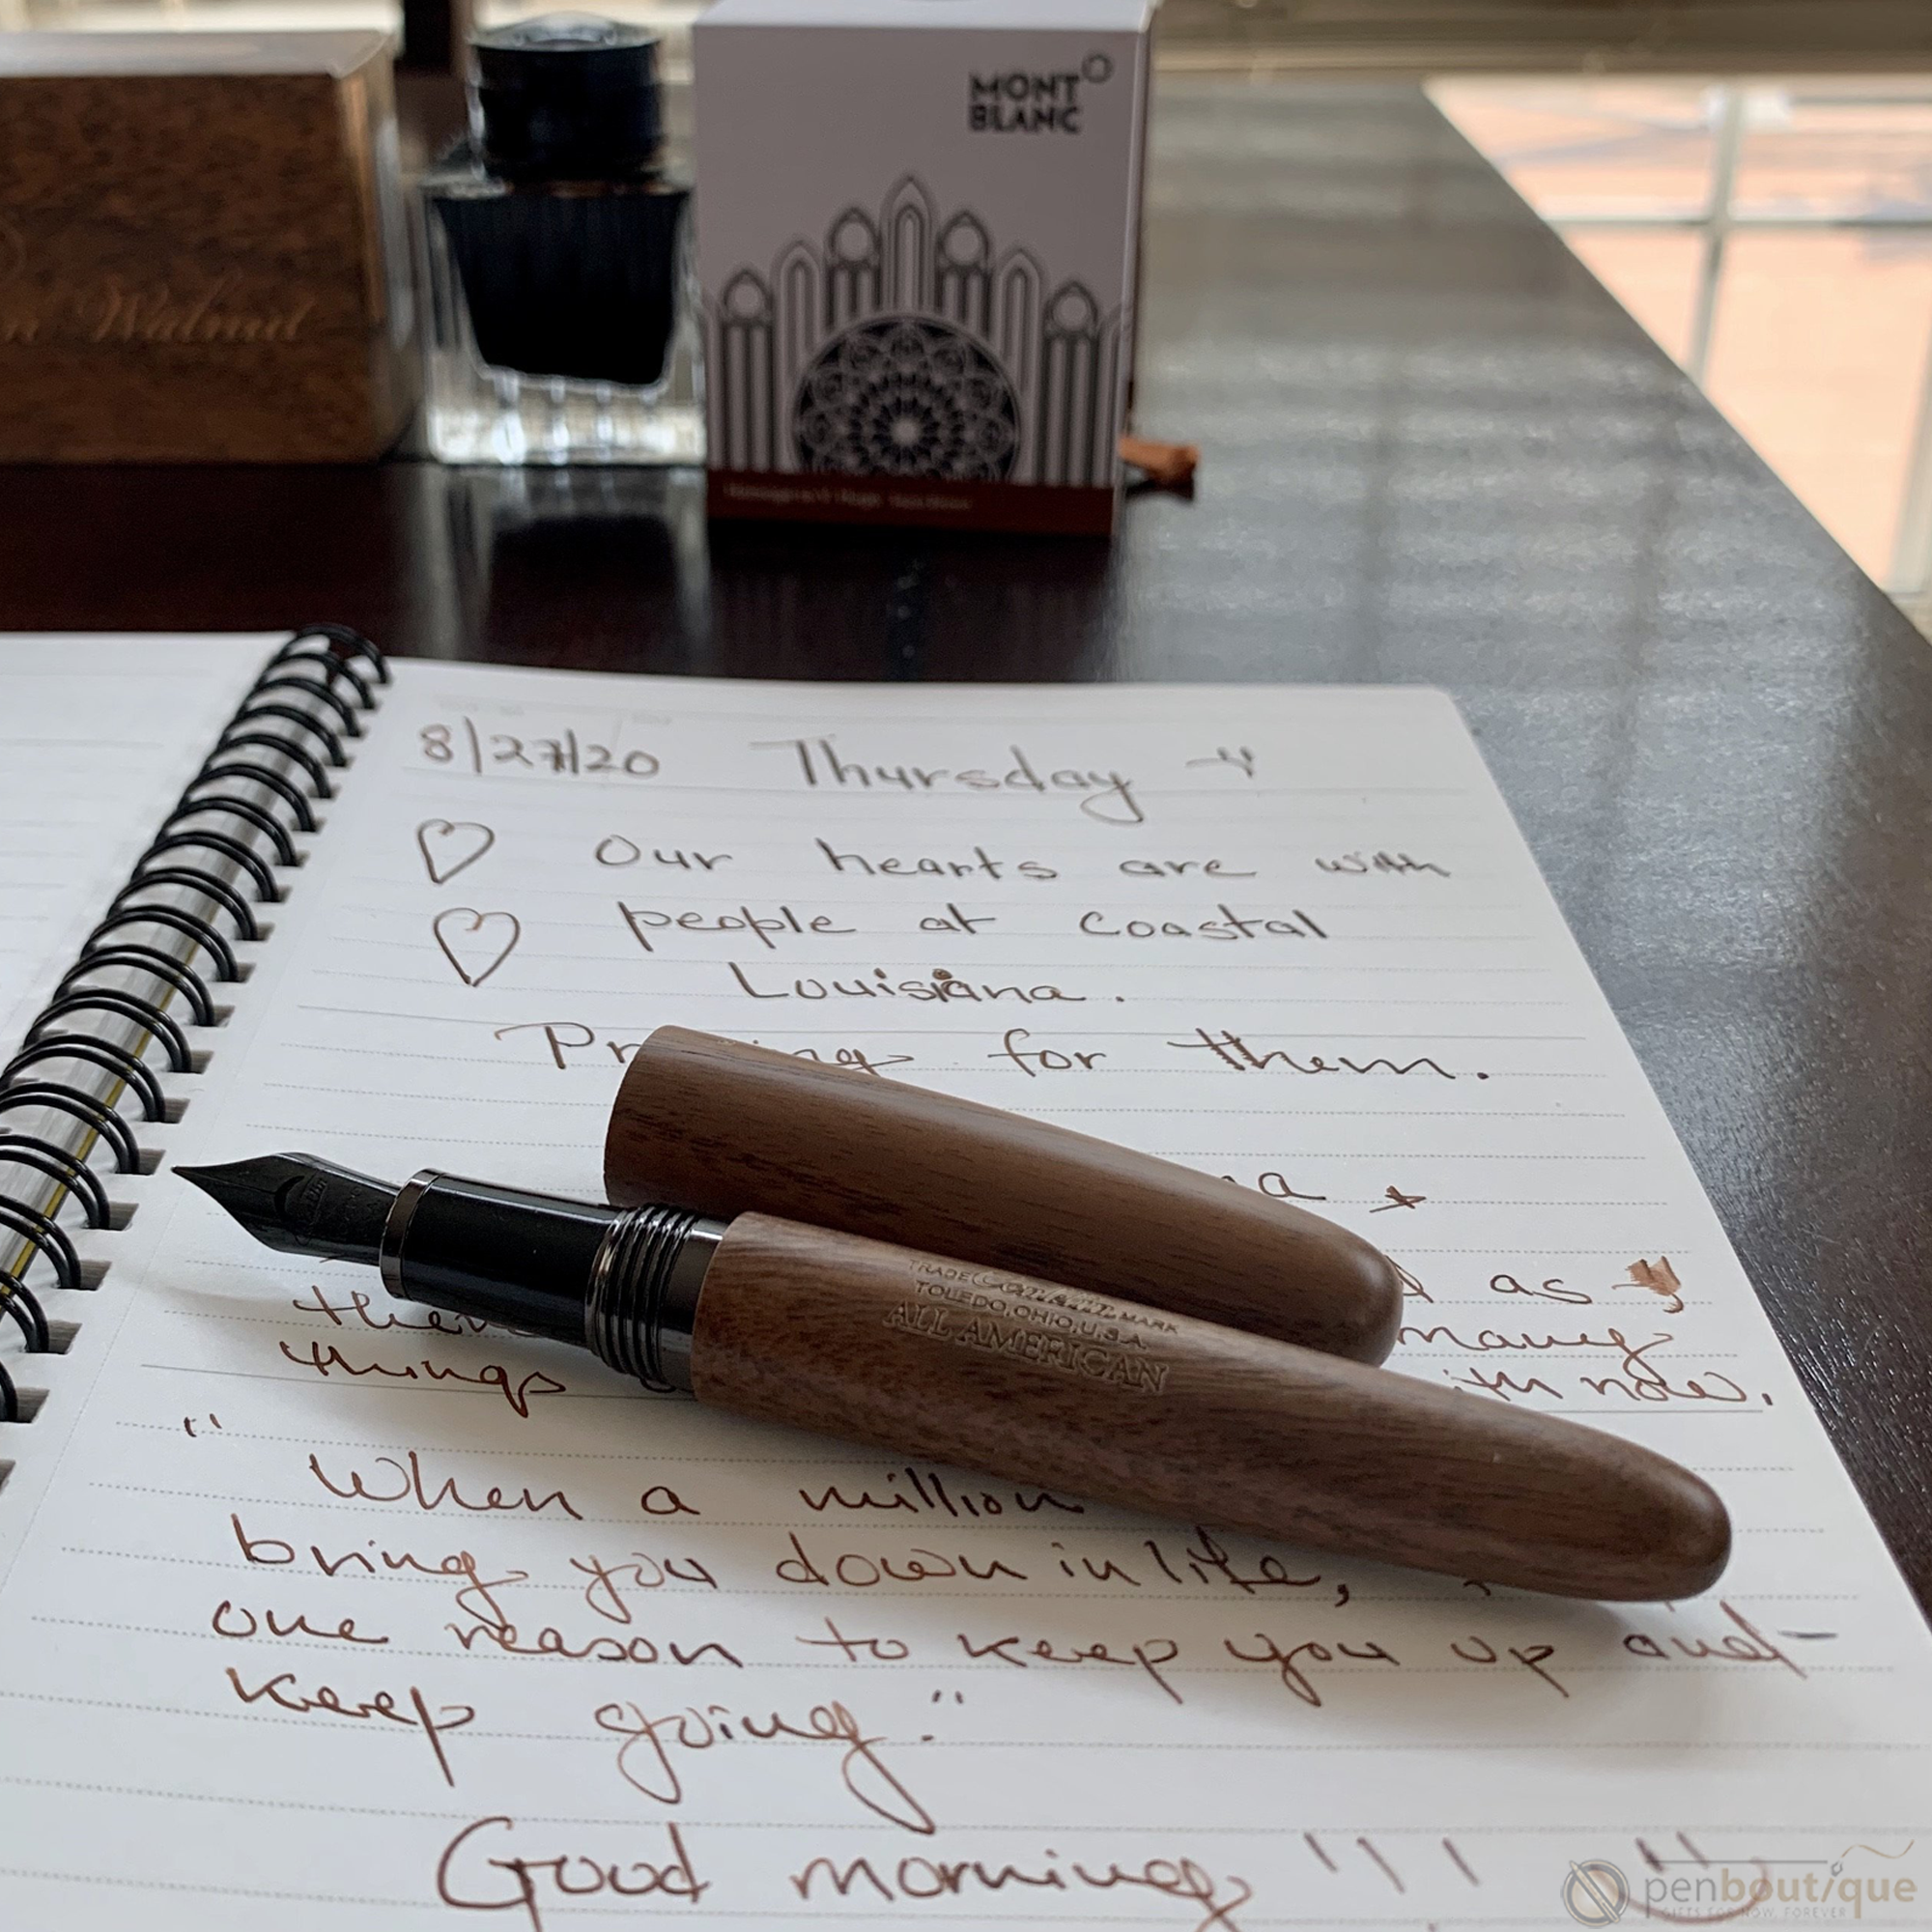 MONT
BLANC
Walnut
8/27/20 Thursday
Our hearts are with
people at Coastal
Louisiana.
for them.
TRADE Conklin MARK
TOLEDO, OHIO, U.S.A.
ALL AMERICAN
as
many
things with now.
"When a million
bring you down in life,
one reason to keep you up and
keep going."
Good morning !!!
penboutique
GIFTS FOR NOW, FOREVER